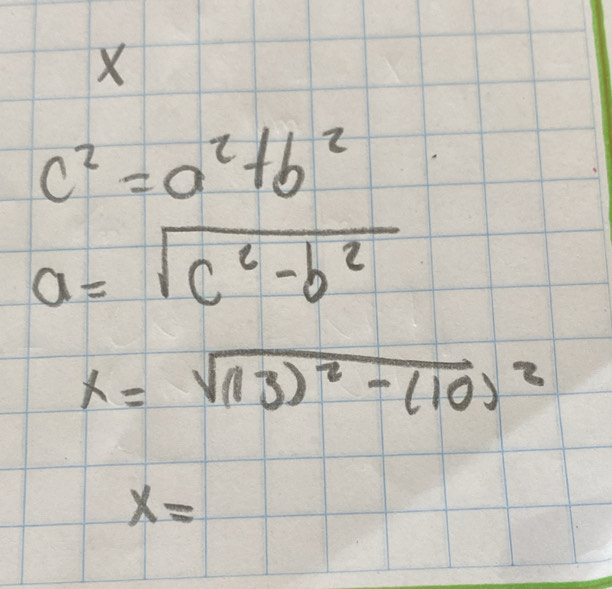 x
c² = a² + b²
a = √c² - b²
x = √(13)² - (10)²
x =